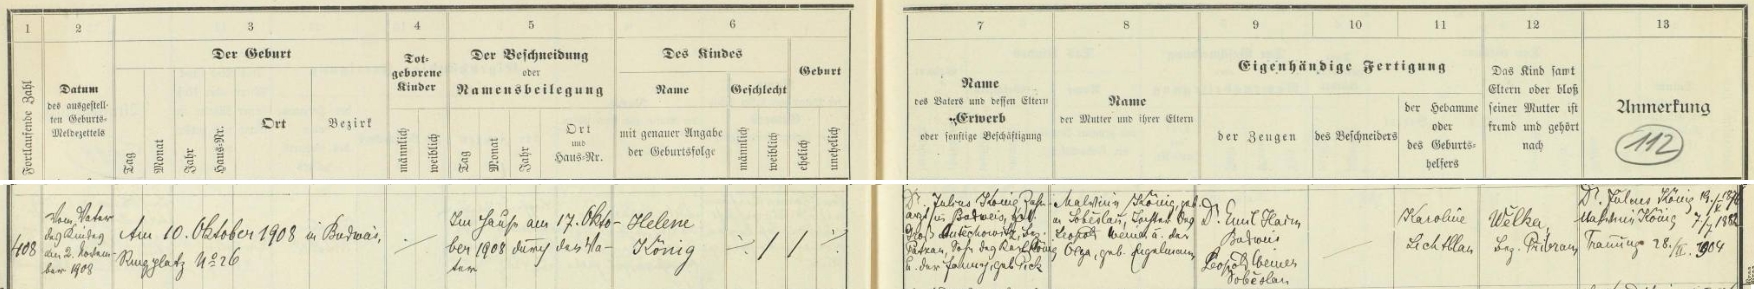 1 2 3 4 5 6
Fortlaufende Zahl
Datum
des ausgestell-
ten Geburts-
Meldezettels
Der Geburt
Tag
Monat
Jahr
Haus-Nr.
Ort
Bezirk
Tot-
geborene
Kinder
männlich
weiblich
Der Beschneidung
oder
Namensbeilegung
Tag
Monat
Jahr
Ort
und
Haus-Nr.
Des Kindes
Name
mit genauer Angabe
der Geburtsfolge
Geschlecht
männlich
weiblich
Geburt
ehelich
unehelich
7 8 9 10 11 12 13
Name
des Vaters und dessen Eltern
Erwerb
oder sonstige Beschäftigung
Name
der Mutter und ihrer Eltern
Eigenhändige Fertigung
der Zeugen
des Beschneiders
der Hebamme
oder
des Geburts-
helfers
Das Kind samt
Eltern oder bloß
seiner Mutter ist
fremd und gehört
nach
Anmerkung
112
408
Vom Vater
des Kindes
am 2. Novem-
ber 1908
Am 10. Oktober 1908 in Budweis,
Ringplatz No 26
Im Hause am 17. Okto-
ber 1908 durch den Va-
ter
Helene
König
Dr. Julius König, Zahn-
arzt in Budweis,
Sohn des Karl König
u. der Fanny, geb. Pick
Malvine König, geb.
in Soběslau, Tochter des
Leopold Wemer u. der
Olga, geb. Engelmann
Dr. Emil Haim
Budweis
Leopold Wemer
Soběslau
Karoline
Welka,
Bez. Přibram
Dr. Julius König
Malvine König
Trauung 28. 1904